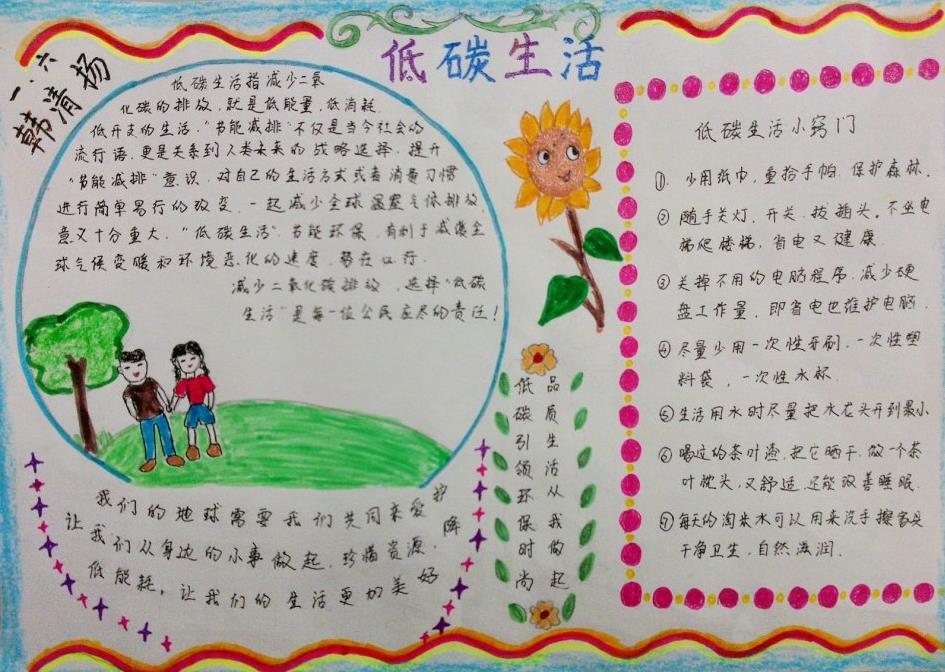 低碳生活
一.六
韩清扬
低碳生活指减少二氧
化碳的排放,就是低能量,低消耗
低开支的生活."节能减排"不仅是当今社会的
流行语,更是关系到人类未来的战略选择,提升
"节能减排"意识,对自己的生活方式或者消费习惯
进行简单易行的改变,一起减少全球温室气体排放,
意义十分重大."低碳生活"节能环保,有利于减缓全
球气候变暖和环境恶化的速度,势在必行.
减少二氧化碳排放,选择"低碳
生活"是每一位公民应尽的责任!
我们的地球需要我们共同来爱护
让我们从身边的小事做起,珍惜资源,降
低能耗,让我们的生活更加美好
低碳引领环保时尚
品质生活从我做起
低碳生活小窍门
①.少用纸巾,重拾手帕,保护森林.
②随手关灯、开关、拔插头,不坐电
梯爬楼梯,省电又健康.
③关掉不用的电脑程序,减少硬
盘工作量,即省电也维护电脑.
④尽量少用一次性牙刷,一次性塑
料袋,一次性水杯.
⑤生活用水时尽量把水龙头开到最小
⑥喝过的茶叶渣,把它晒干,做一个茶
叶枕头,又舒适,还能改善睡眠.
⑦每天的淘米水可以用来洗手擦家具
干净卫生,自然滋润.